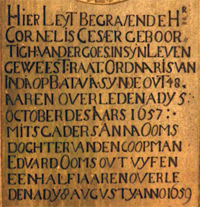 HIER LEYT BEGRAVEN DE HR
CORNELIS CESER GEBOOR
TIGH VANDER GOES. IN SYN LEVEN
GEWEEST RAAT. ORDNARIS VAN
INDA OP BATVA SYNDE OVT 48.
IAAREN OVERLEDEN ADY 5:
OCTOBER DES IAARS 1657:
MITSGADERS ANNA OOMS
DOCHTER VANDEN COOPMAN
EDVARD OOMS OVT VYF EN
EEN HALF IAAREN OVERLE
DEN ADY 8 AUGUSTY ANNO 1659